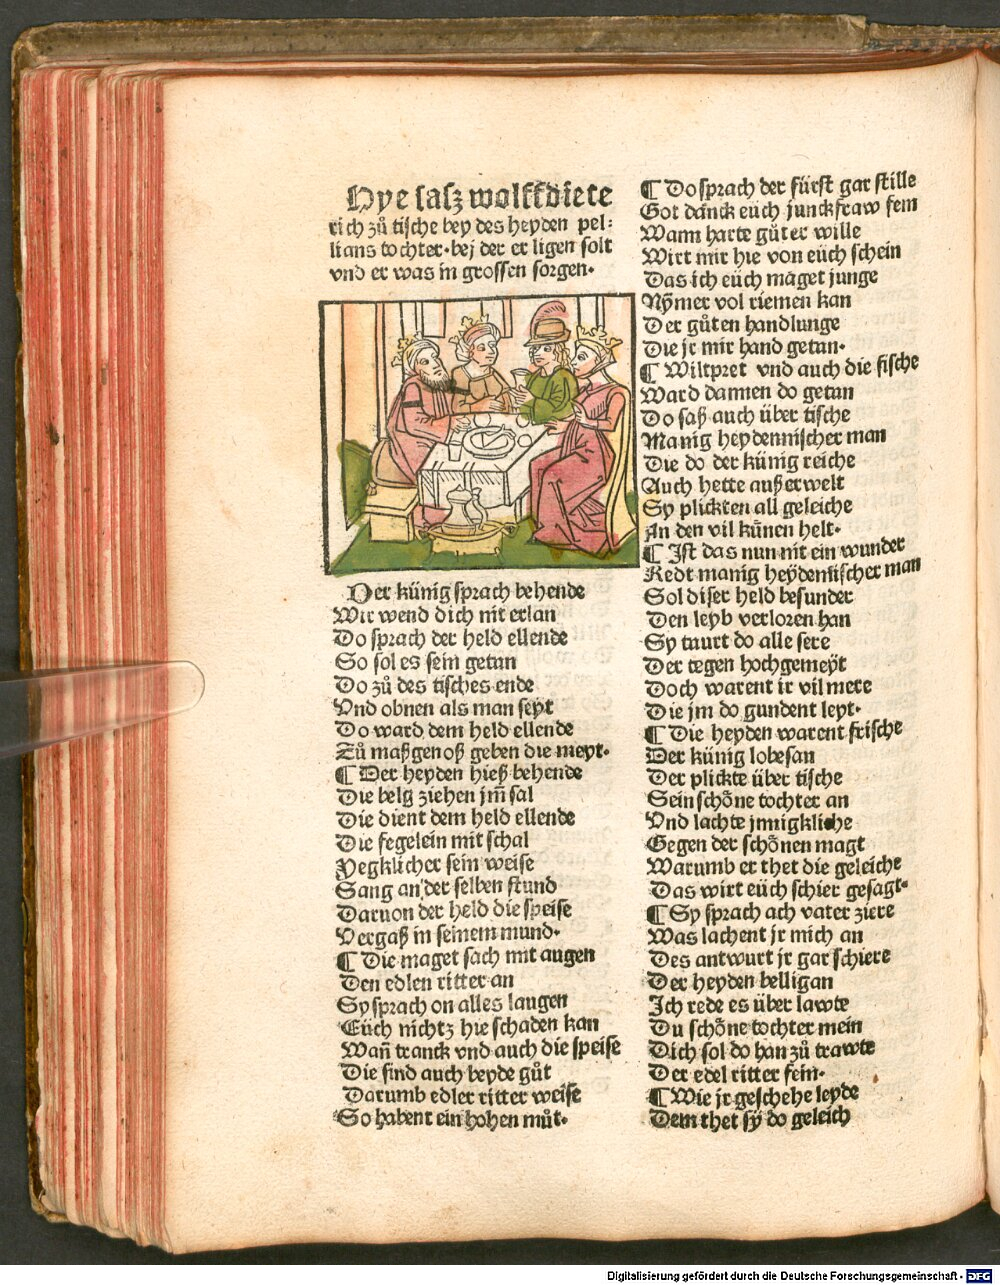 Hye sasz wolffdiete
rich zů tische bey des heyden pel⸗
lians tochter·bej der er ligen solt
vnd er was in grossen sorgen·
Der künig sprach behende
Wir wend dich nit erlan
Do sprach der held ellende
So sol es sein getan
Do zů des tisches ende
Vnd obnen als man seyt
Do ward dem held ellende
Zů maßgenoß geben die meyt·
¶ Der heyden hieß behende
Die belg ziehen jm̄ sal
Die dient dem held ellende
Die fegelein mit schal
Yegklicher sein weise
Sang an der selben stund
Daruon der held die speise
Vergaß in seinem mund·
¶ Die maget sach mit augen
Den edlen ritter an
Sy sprach on alles laugen
Eüch nichtz hie schaden kan
Wan̄ tranck vnd auch die speise
Die sind auch beyde gůt
Darumb edler ritter weise
So habent ein hohen můt·
¶ Do sprach der fürst gar stille
Got danck eüch junckfraw fein
Wann harte gůter wille
Wirt mir hie von eüch schein
Das ich eüch maget junge
Nymer vol riemen kan
Der gůten handlunge
Die jr mir hand getan·
¶ Wiltpret vnd auch die fische
Ward dannen do getan
Do saß auch über tische
Manig heydennischer man
Die do der künig reiche
Auch hette außerwelt
Sy plickten all geleiche
An den vil künen helt·
¶ Ist das nun nit ein wunder
Redt manig heydennischer man
Sol diser held besunder
Den leyb verloren han
Sy taurt do alle sere
Der tegen hochgemeyt
Doch warent ir vil mere
Die jm do gundent leyt·
¶ Die heyden warent frische
Der künig lobesan
Der plickte über tische
Sein schöne tochter an
Vnd lachte jnnigkliche
Gegen der schönen magt
Warumb er thet die geleiche
Das wirt eüch schier gesagt·
¶ Sy sprach ach vater ziere
Was lachent jr mich an
Des antwurt jr gar schiere
Der heyden belligan
Ich rede es über lawte
Du schöne tochter mein
Dich sol do han zů trawte
Der edel ritter fein·
¶ Wie jr geschehe leyde
Dem thet sy do geleich
Digitalisierung gefördert durch die Deutsche Forschungsgemeinschaft - DFG